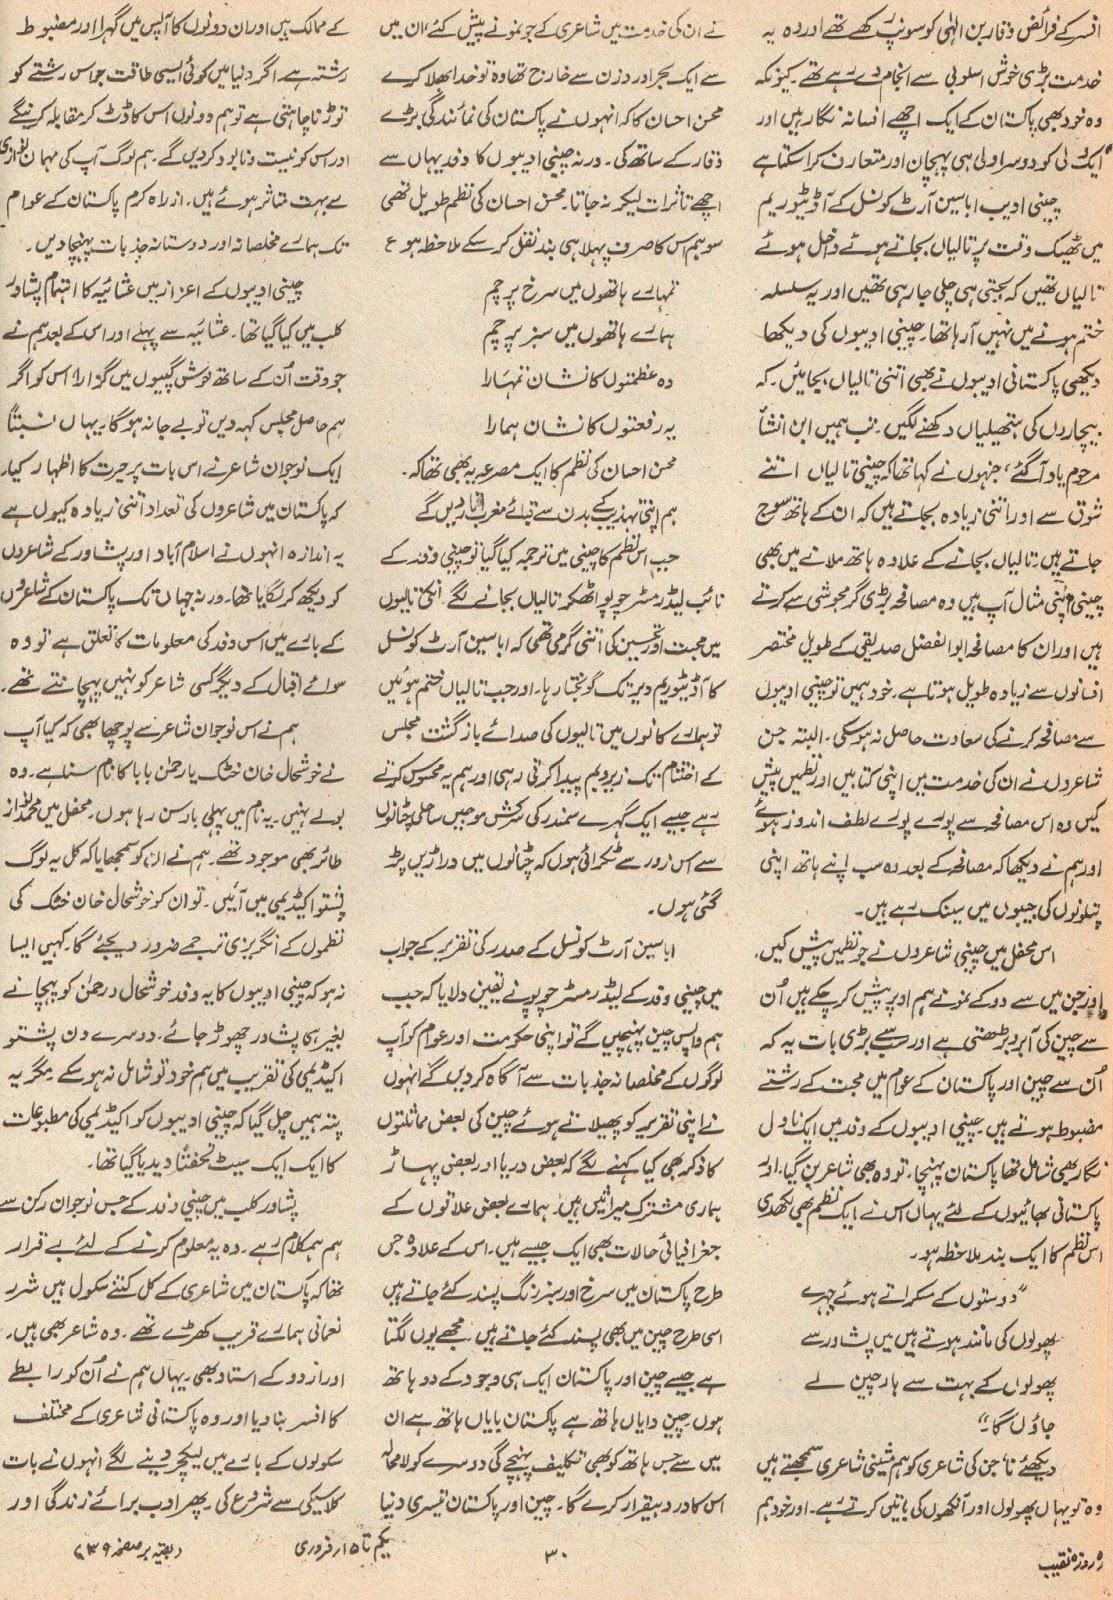 افسر کے فرائض وقار بن الٰہی کو سونپ رکھے تھے اور وہ یہ
خدمت بڑی خوش اسلوبی سے انجام دے رہے تھے۔ کیونکہ
وہ خود بھی پاکستان کے ایک اچھے افسانہ نگار ہیں اور
ایک ولی کو دوسرا ولی ہی پہچان اور متعارف کرا سکتا ہے
چینی ادیب اباسین آرٹ کونسل کے آڈیٹوریم
میں ٹھیک وقت پر تالیاں بجاتے ہوئے داخل ہوئے
تالیاں تھیں کہ بجتی ہی چلی جا رہی تھیں اور یہ سلسلہ
ختم ہونے میں نہیں آ رہا تھا۔ چینی ادیبوں کی دیکھا
دیکھی پاکستانی ادیبوں نے بھی اتنی تالیاں بجائیں۔ کہ
بیچاروں کی ہتھیلیاں دکھنے لگیں۔ تب ہمیں ابن انشاؔ
مرحوم یاد آ گئے، جنہوں نے کہا تھا کہ چینی تالیاں اتنے
شوق سے اور اتنی زیادہ بجاتے ہیں کہ ان کے ہاتھ سوج
جاتے ہیں۔ تالیاں بجانے کے علاوہ ہاتھ ملانے میں بھی
چینی اپنی مثال آپ ہیں وہ مصافحہ بڑی گرمجوشی سے کرتے
ہیں اور ان کا مصافحہ ابوالفضل صدیقی کے طویل مختصر
افسانوں سے زیادہ طویل ہوتا ہے۔ خود ہمیں تو چینی ادیبوں
سے مصافحہ کرنے کی سعادت حاصل نہ ہو سکی۔ البتہ جن
شاعروں نے ان کی خدمت میں اپنی کتابیں اور نظمیں پیش
کیں وہ اس مصافحہ سے پورے پورے لطف اندوز ہوئے
اور ہم نے دیکھا کہ مصافحہ کے بعد وہ سب اپنے ہاتھ اپنی
پتلونوں کی جیبوں میں سینک رہے ہیں۔
اس محفل میں چینی شاعروں نے جو نظمیں پیش کیں،
اور جن میں سے دو کے نمونے ہم اوپر پیش کر چکے ہیں اُن
سے چین کی آبرو بڑھتی ہے اور سب سے بڑی بات یہ کہ
اُن سے چین اور پاکستان کے عوام میں محبت کے رشتے
مضبوط ہوتے ہیں۔ چینی ادیبوں کے وفد میں ایک ناول
نگار بھی شامل تھا پاکستان پہنچا، تو وہ بھی شاعر بن گیا، اور
پاکستانی بھائیوں کے لئے یہاں اس نے ایک نظم بھی لکھدی
اس نظم کا ایک بند ملاحظہ ہو۔
”دوستوں کے مسکراتے ہوئے چہرے
پھولوں کی مانند ہوتے ہیں میں پشاور سے
پھولوں کے بہت سے ہار چین لے
جاؤں گا“
دیکھئے نا، جن کی شاعری کو ہم مشینی شاعری سمجھتے ہیں
وہ تو یہاں پھولوں اور آنکھوں کی باتیں کرتے رہے۔ اور خود ہم
نے ان کی خدمت میں شاعری کے جو نمونے پیش کئے، ان میں
سے ایک بحر اور وزن سے خارج تھا وہ تو خدا بھلا کرے
محسن احسان کا کہ انہوں نے پاکستان کی نمائندگی بڑے
وقار کے ساتھ کی۔ ورنہ چینی ادیبوں کا وفد یہاں سے
اچھے تاثرات لیکر نہ جاتا۔ محسن احسان کی نظم طویل تھی
سو ہم اس کا صرف پہلا ہی بند نقل کر سکے ملاحظہ ہو ع
تمہارے ہاتھوں میں سرخ پرچم
ہمارے ہاتھوں میں سبز پرچم
وہ عظمتوں کا نشان تمہارا
یہ رفعتوں کا نشان ہمارا
محسن احسان کی نظم کا ایک مصرعہ یہ بھی تھا کہ۔
ہم اپنی تہذیب کے بدن سے قبائے مغرب اتار دیں گے
جب اس نظم کا چینی میں ترجمہ کیا گیا تو چینی وفد کے
نائب لیڈر مسٹر چو پو اٹھ کر تالیاں بجانے لگے۔ انکی تالیوں
میں محبت اور تحسین کی اتنی گرمی تھی کہ اباسین آرٹ کونسل
کا آڈیٹوریم دیر تک گونجتا رہا۔ اور جب تالیاں ختم ہوئیں
تو ہمارے کانوں میں تالیوں کی صدائے بازگشت مجلس
کے اختتام تک زیر و بم پیدا کرتی رہی اور ہم یہ محسوس کرتے
رہے جیسے ایک گہرے سمندر کی سرکش موجیں ساحلی چٹانوں
سے اس زور سے ٹکرائی ہوں کہ چٹانوں میں دراڑیں پڑ
گئی ہوں۔
اباسین آرٹ کونسل کے صدر کی تقریر کے جواب
میں چینی وفد کے لیڈر مسٹر چو پو نے یقین دلایا کہ جب
ہم واپس چین پہنچیں گے تو اپنی حکومت اور عوام کو آپ
لوگوں کے مخلصانہ جذبات سے آگاہ کر دیں گے انہوں
نے اپنی تقریر کو پھیلاتے ہوئے چین کی بعض مماثلتوں
کا ذکر بھی کیا کہنے لگے کہ بعض دریا اور بعض پہاڑ
ہماری مشترک میراثیں ہیں۔ ہمارے بعض علاقوں کے
جغرافیائی حالات بھی ایک جیسے ہیں۔ اس کے علاوہ جس
طرح پاکستان میں سرخ اور سبز رنگ پسند کئے جاتے ہیں
اسی طرح چین میں بھی پسند کئے جاتے ہیں۔ مجھے یوں لگتا
ہے جیسے چین اور پاکستان ایک ہی وجود کے دو ہاتھ
ہوں چین دایاں ہاتھ ہے پاکستان بایاں ہاتھ ہے ان
میں سے جس ہاتھ کو بھی تکلیف پہنچے گی دوسرے کو لامحالہ
اس کا درد بیقرار کرے گا۔ چین اور پاکستان تیسری دنیا
کے ممالک ہیں اور ان دونوں کا آپس میں گہرا اور مضبوط
رشتہ ہے۔ اگر دنیا میں کوئی ایسی طاقت جو اس رشتے کو
توڑنا چاہتی ہے تو ہم دونوں اس کا ڈٹ کر مقابلہ کرینگے
اور اس کو نیست و نابود کر دیں گے۔ ہم لوگ آپ کی مہمان نوازی
سے بہت متاثر ہوئے ہیں۔ از راہ کرم پاکستان کے عوام
تک ہمارے مخلصانہ اور دوستانہ جذبات پہنچا دیں۔
چینی ادیبوں کے اعزاز میں عشائیہ کا اہتمام پشاور
کلب میں کیا گیا تھا۔ عشائیہ سے پہلے اور اس کے بعد ہم نے
جو وقت اُن کے ساتھ خوش گپیوں میں گذارا، اس کو اگر
ہم حاصل مجلس کہہ دیں تو بے جا نہ ہو گا۔ یہاں نسبتاً
ایک نوجوان شاعر نے اس بات پر حیرت کا اظہار کیا۔
کہ پاکستان میں شاعروں کی تعداد اتنی زیادہ کیوں ہے
یہ اندازہ انہوں نے اسلام آباد اور پشاور کے شاعروں
کو دیکھ کر لگایا تھا۔ ورنہ جہاں تک پاکستان کے شاعروں
کے بارے میں اس وفد کی معلومات کا تعلق ہے تو وہ
سوائے اقبال کے دیگر کسی شاعر کو نہیں پہچانتے تھے۔
ہم نے اس نوجوان شاعر سے پوچھا بھی کہ کیا آپ
نے خوشحال خان خٹک یا رحمٰن بابا کا نام سنا ہے۔ وہ
بولے نہیں۔ یہ نام میں پہلی بار سن رہا ہوں۔ محفل میں محمد نواز
طائر بھی موجود تھے۔ ہم نے ان کو سمجھایا کہ کل یہ لوگ
پشتو اکیڈیمی میں آئیں۔ تو ان کو خوشحال خان خٹک کی
نظموں کے انگریزی ترجمے ضرور دیجئے گا۔ کہیں ایسا
نہ ہو کہ چینی ادیبوں کا یہ وفد خوشحال و رحمٰن کو پہچانے
بغیر ہی پشاور چھوڑ جائے۔ دوسرے دن پشتو
اکیڈیمی کی تقریب میں ہم خود تو شامل نہ ہو سکے۔ مگر یہ
پتہ ہمیں چل گیا کہ چینی ادیبوں کو اکیڈیمی کی مطبوعات
کا ایک ایک سیٹ تحفتاً دیدیا گیا تھا۔
پشاور کلب میں چینی وفد کے جس نوجوان رکن سے
ہم ہمکلام رہے۔ وہ یہ معلوم کرنے کے لئے بے قرار
تھا کہ پاکستان میں شاعری کے کل کتنے سکول ہیں شرر
نعمانی ہمارے قریب کھڑے تھے۔ وہ شاعر بھی ہیں۔
اور اردو کے استاد بھی۔ یہاں ہم نے اُن کو رابطے
کا افسر بنا دیا اور وہ پاکستانی شاعری کے مختلف
سکولوں کے بارے میں لیکچر دینے لگے انہوں نے بات
کلاسیکی سے شروع کی۔ پھر ادب برائے زندگی اور
(بقیہ بر صفحہ ۳۹)
یکم تا ۱۵ر فروری
۳۰
روزہ نقیب